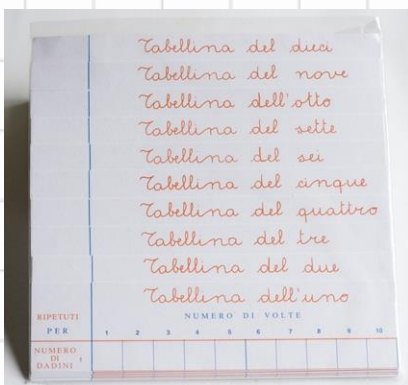 Tabellina del dieci
Tabellina del nove
Tabellina dell'otto
Tabellina del sette
Tabellina del sei
Tabellina del cinque
Tabellina del quattro
Tabellina del tre
Tabellina del due
Tabellina dell'uno
RIPETUTI NUMERO DI VOLTE
PER 1 2 3 4 5 6 7 8 9 10
NUMERO
DI 1
DADINI